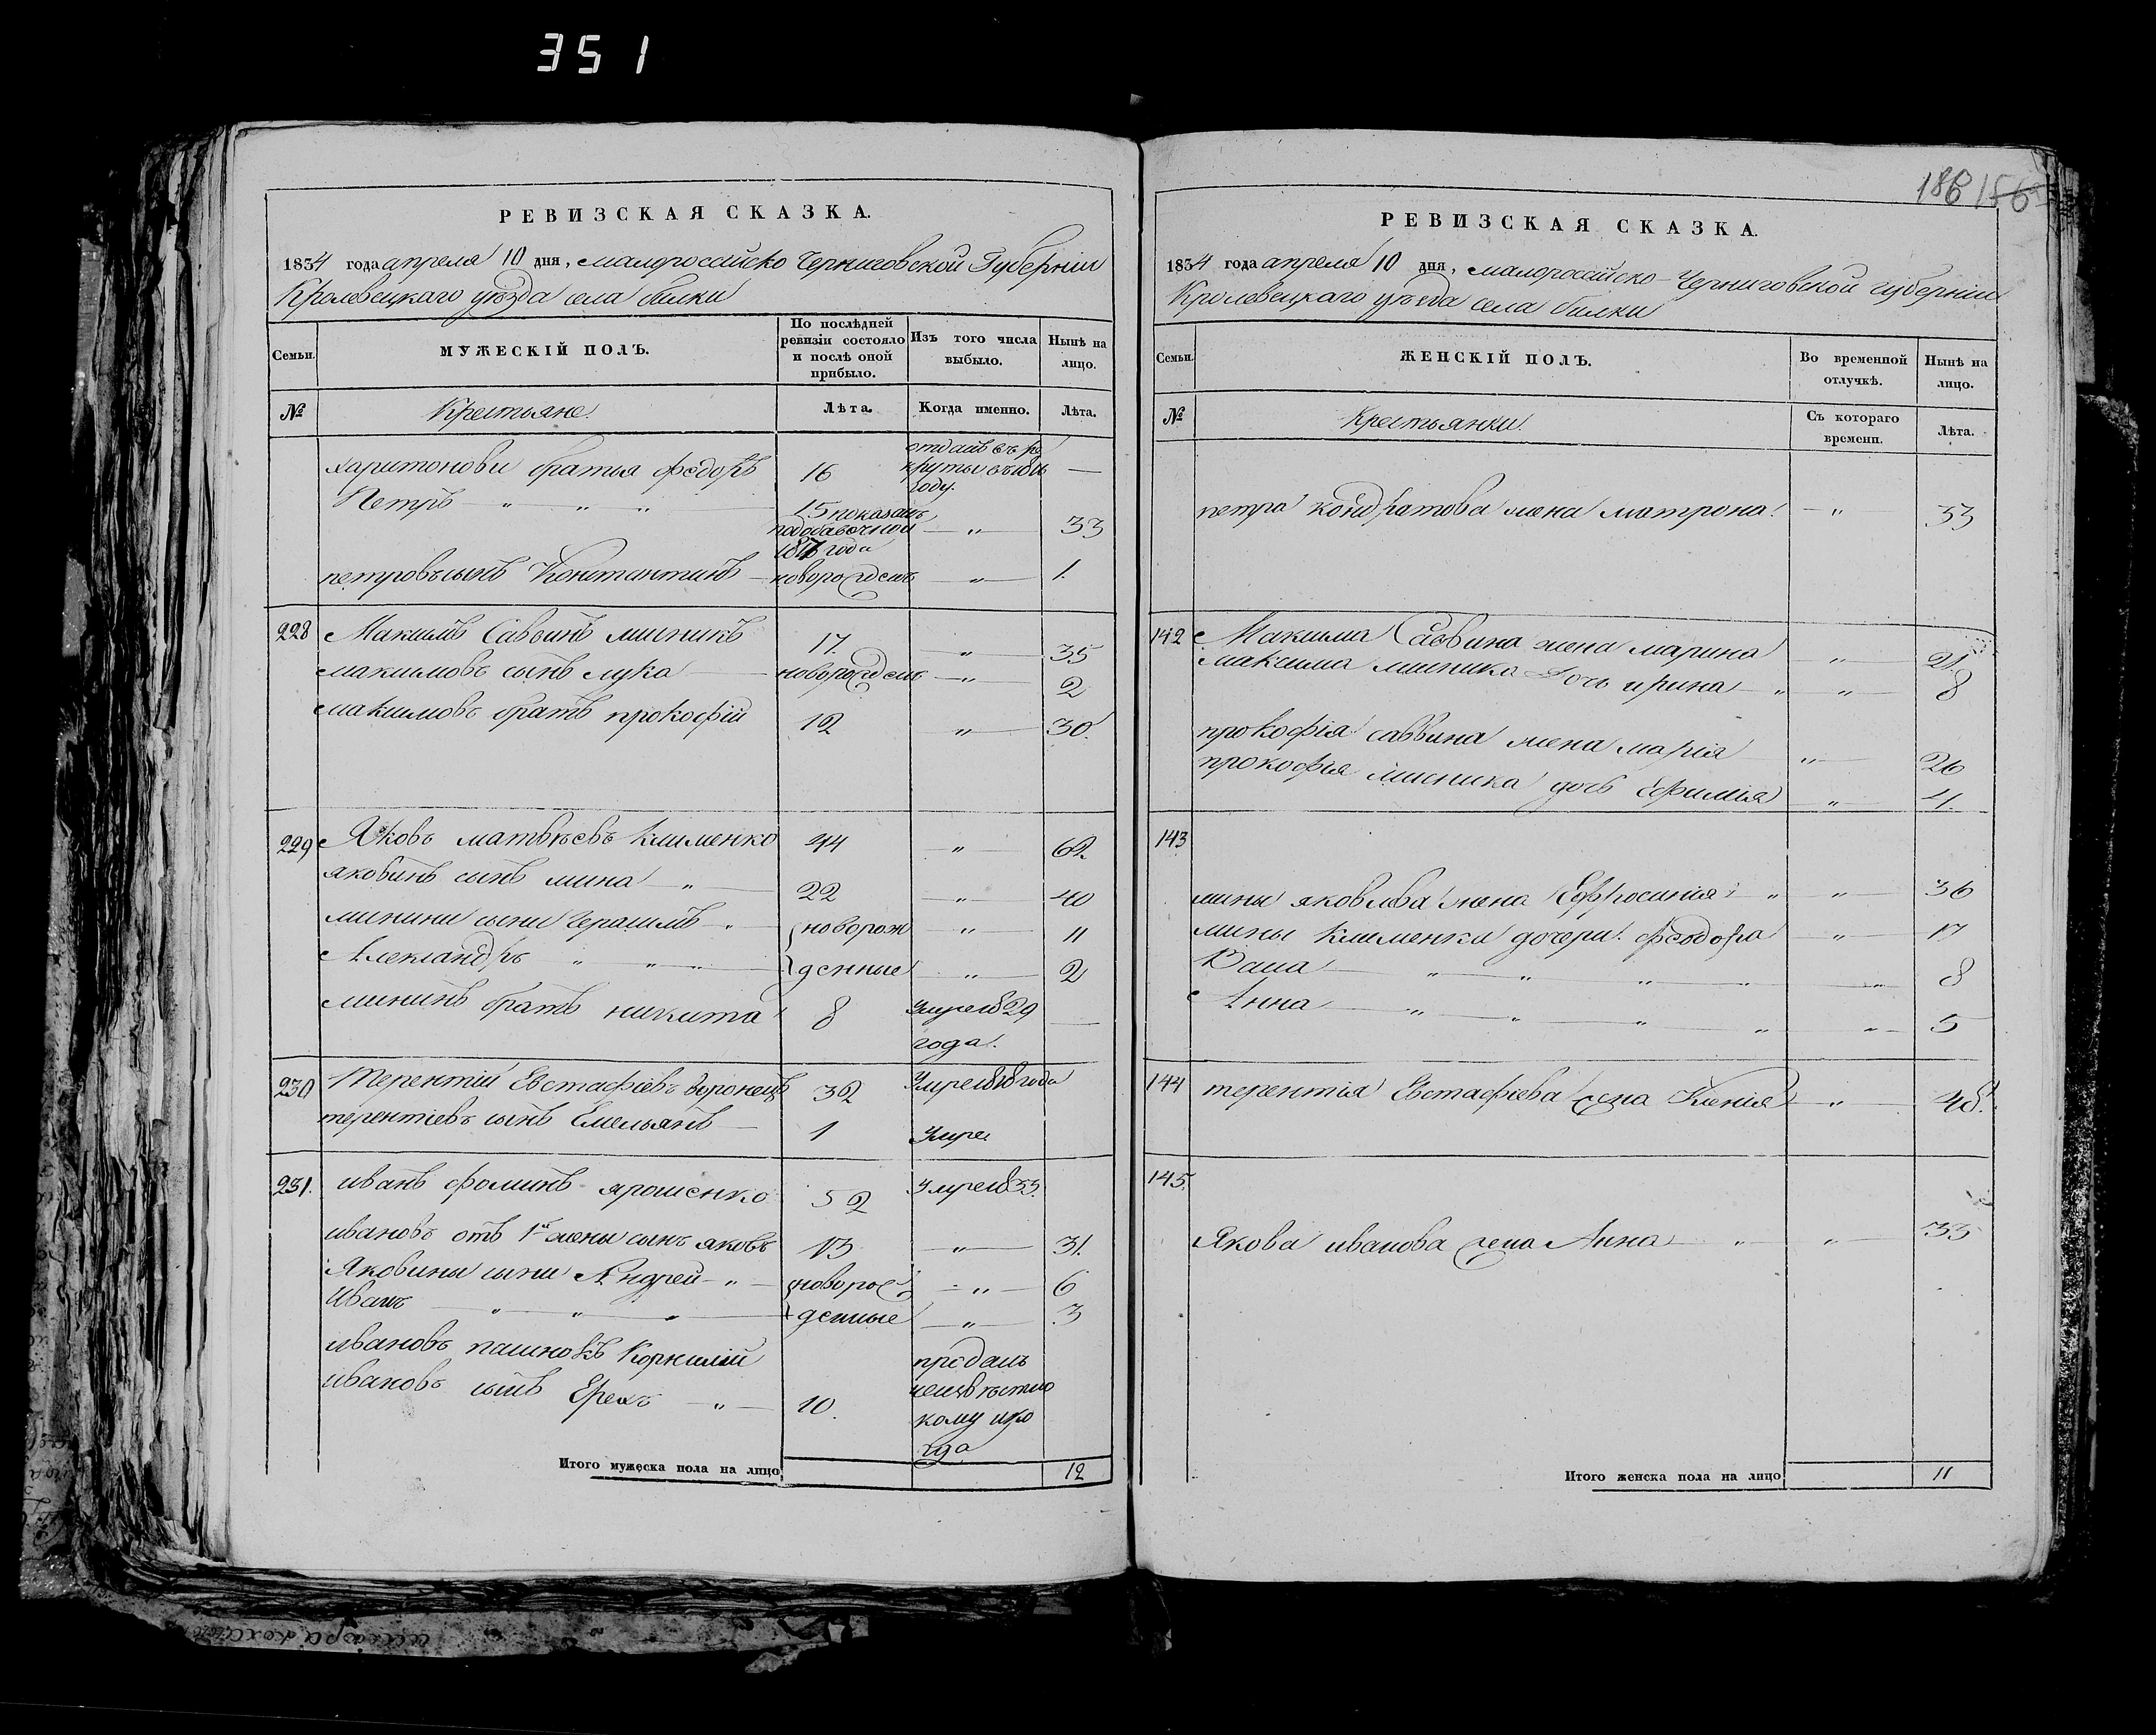 351
РЕВИЗСКАЯ СКАЗКА.
1834 года апреля 10 дня, малороссийско Черниговской Губернии
Кролевецкаго уезда села билки
Семьи.
МУЖЕСКІЙ ПОЛЪ.
По послѣдней ревизіи состояло и послѣ оной прибыло.
Изъ того числа выбыло.
Нынѣ на лицо.
№ Крестьяне. Лѣта. Когда именно. Лѣта.
харитонови братья федоръ 16 отданъ въ рекруты въ году. —
Петръ — „ „ „ 15 показанъ — „ — 33
1817 года
петровъ сынъ Константинъ — новорожденъ — „ — 1.
228 Максимъ Саввинъ мисникъ 17. — „ — 35
максимовъ сынъ лука — новорожденъ — „ — 2
максимовъ братъ прокофій 12 „ — 30.
229 Яковъ матвѣевъ Клименко 44 — „ — 62
яковинъ сынъ мина — „ — 22 — „ — 40
минини сыни Герасимъ — „ — новорож „ — 11
Александръ „ — „ — „ — денные — „ — 2
мининъ братъ никита 8 Умре 1829 года. —
230 Терентій Евстафіевъ воронецъ 32 Умре 1818 года
терентіевъ сынъ Емельянъ — 1 Умре
231. иванъ фоминъ ярошенко 52 Умре 1833.
ивановъ отъ 1й жены сынъ яковъ 13 — „ — 31.
Яковины сыни Андрей — „ — новорож — „ — 6
Иванъ — „ — „ — „ — денные — „ — 3
ивановъ пасинокъ Корнилій проданъ
ивановъ сынъ — „ — 10. неизвѣстно кому и когда
Итого мужеска пола на лицо 12
186 186
РЕВИЗСКАЯ СКАЗКА.
1834 года апреля 10 дня, малороссійско-Черниговской губерніи
Кролевецкаго уезда села билки
Семьи.
ЖЕНСКІЙ ПОЛЪ.
Во временной отлучкѣ.
Нынѣ на лицо.
№ Крестьянки. Съ котораго времени. Лѣта.
петра кондратова жена матрона. — „ 33
142 Максима Саввина жена марина „
максима мисника дочь ирина — „ „ 8
прокофія саввина жена марія „ — 26
прокофія мисника дочь Ефимія „ — 4.
143
мины яковлева жена Ефросинія — „ — „ — 36
мины Клименка дочери. феодора „ — 17
Васса — „ „ „ „ „ 8
Анна — „ „ „ „ „ — 5
144 терентія Евстафіева жена Ксенія — „ — 48.
145.
Якова иванова жена Анна — „ — „ — 33
Итого женска пола на лицо 11